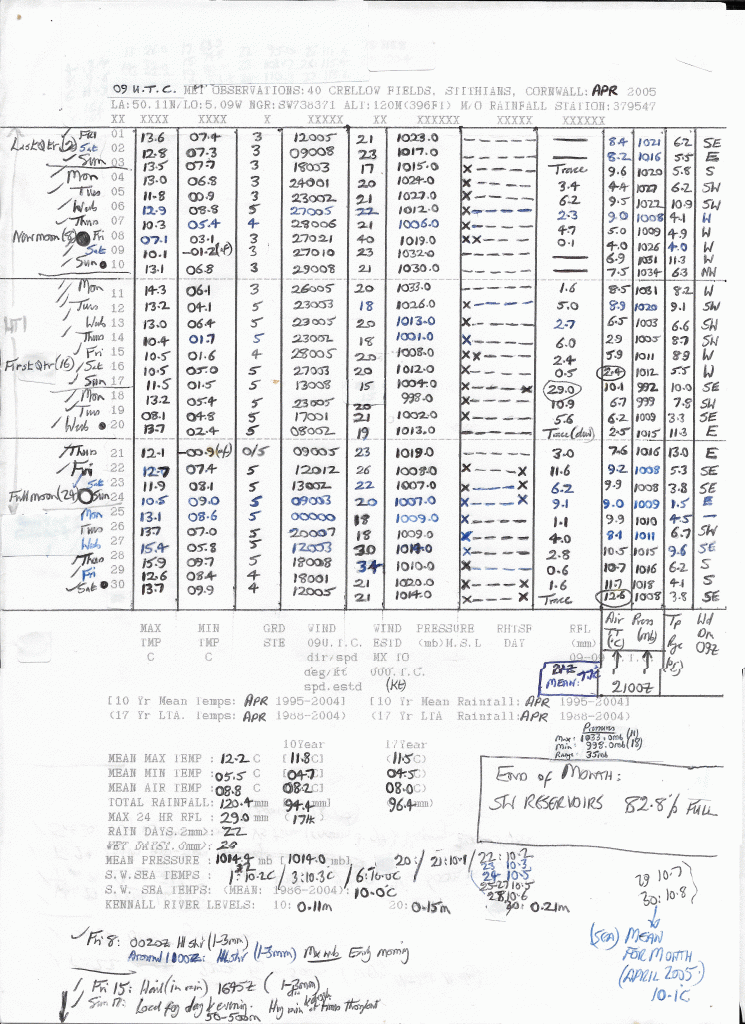 09 U.T.C. MET OBSERVATIONS:40 CRELLOW FIELDS, STITHIANS, CORNWALL: APR 2005
LA:50.11N/LO:5.09W NGR:SW738371 ALT:120M(396FT) M/O RAINFALL STATION:379547
XX XXXX XXXX X XXXXX XX XXXXXX XXXXX XXXXXX
Fri 01 13.6 07.4 3 12005 21 1023.0 8.4 1021 6.2 SE
Last Qtr (2) Sat 02 12.8 07.3 3 09008 23 1017.0 8.2 1016 5.5 E
Sun 03 13.5 07.7 3 18003 17 1015.0 X Trace 9.6 1020 5.8 S
Mon 04 13.0 06.8 3 24001 20 1024.0 X 3.4 4.4 1027 6.2 SW
Tues 05 11.8 00.9 3 23002 21 1027.0 X 6.2 9.5 1022 10.9 SW
Wed 06 12.9 08.8 5 27005 22 1012.0 X 2.3 9.0 1008 4.1 W
Thurs 07 10.3 05.4 4 28006 21 1006.0 X 4.7 5.0 1009 4.9 W
New moon (8) Fri 08 07.1 03.1 3 27021 40 1019.0 XX 0.1 4.0 1026 4.0 W
Sat 09 10.1 -01.2 3 27010 23 1032.0 6.9 1031 11.3 W
Sun 10 13.1 06.8 3 29008 21 1030.0 7.5 1034 6.3 NW
Mon 11 14.3 06.1 3 26005 20 1033.0 1.6 8.5 1031 8.2 W
Tues 12 13.2 04.1 5 23003 18 1026.0 X 5.0 8.9 1020 9.1 SW
Wed 13 13.0 06.4 5 23005 20 1013.0 X 2.7 6.5 1003 6.6 SW
Thurs 14 10.4 01.7 5 23002 18 1001.0 X 6.0 2.9 1005 8.7 SW
Fri 15 10.5 01.6 4 28005 20 1008.0 XX 2.4 5.9 1011 8.9 W
First Qtr (16) Sat 16 10.5 05.0 5 27003 20 1012.0 X 0.5 2.4 1012 5.5 W
Sun 17 11.5 01.5 5 13008 15 1004.0 X X 29.0 10.1 992 10.0 SE
Mon 18 13.2 05.4 5 23005 20 998.0 X 10.9 6.7 999 7.8 SW
Tues 19 08.1 04.8 5 17001 21 1002.0 X 5.6 6.2 1009 3.3 SE
Wed 20 13.7 02.4 5 08002 19 1013.0 X Trace (dew) 2.5 1015 11.3 E
Thurs 21 12.1 -00.9 0/5 09005 23 1019.0 3.0 7.6 1016 13.0 E
Fri 22 12.7 07.4 5 12012 26 1008.0 X X 11.6 9.2 1008 5.3 SE
Sat 23 11.9 08.1 5 13002 22 1007.0 X X 6.2 9.9 1008 3.8 SE
Full moon (24) Sun 24 10.5 09.0 5 09003 20 1007.0 X X 9.1 9.0 1009 1.5 E
Mon 25 13.1 08.6 5 00000 18 1009.0 X 1.1 9.9 1010 4.5 —
Tues 26 13.7 07.0 5 20007 18 1009.0 X X 4.0 8.1 1011 6.7 SW
Wed 27 15.4 05.8 5 12003 30 1014.0 X 2.8 10.5 1015 9.6 SE
Thurs 28 15.9 09.7 5 18008 34 1010.0 X 0.6 10.7 1016 6.2 S
Fri 29 12.6 08.4 4 18001 21 1020.0 X X 1.6 11.7 1018 4.1 S
Sat 30 13.7 09.9 4 12005 21 1014.0 X X Trace 12.6 1008 3.8 SE
MAX MIN GRD WIND WIND PRESSURE RHTSF RFL Air Press Tp Wd
TMP TMP STE 09U.T.C. ESTD (mb)M.S.L DAY (mm) TT (°C) (mb) Rge Dn
C C dir/spd MX TO 09-09 09Z
deg/kt
spd.estd (Kt) MEAN 2100Z
[10 Yr Mean Temps: APR 1995-2004] [10 Yr Mean Rainfall: APR 1995-2004]
(17 Yr LTA. Temps: APR 1988-2004) (17 Yr LTA Rainfall: APR 1988-2004)
Pressures
Max: 1033.0mb (11)
Min: 998.0mb (18)
Range: 35mb
10Year 17Year
MEAN MAX TEMP : 12.2 C [11.8 C] (11.5 C)
MEAN MIN TEMP : 05.5 C [04.7 C] (04.5 C)
MEAN AIR TEMP : 08.8 C [08.2 C] (08.0 C)
TOTAL RAINFALL: 120.4 mm [94.4 mm] (96.4 mm)
MAX 24 HR RFL : 29.0 mm (17th)
RAIN DAYS.2mm>: 22
WET DAYS1.0mm>: 20
END OF MONTH:
SW RESERVOIRS 82.8% FULL
MEAN PRESSURE : 1014.4 mb [1014.0 mb]
S.W. SEA TEMPS : 1: 10.2C / 3: 10.3C / 6: 10.0C
20: / 21: 10.1 / 22: 10.2
23 10.3
24 10.5
25-27 10.5
28 10.6
29 10.7
30: 10.8
S.W. SEA TEMPS: (MEAN: 1986-2004): 10.0C
KENNALL RIVER LEVELS: 10: 0.11m 20: 0.15m 30: 0.21m
(SEA) MEAN
FOR MONTH
(APRIL 2005:
10.1C
Fri 8: 0020Z Hl shr (1-3mm)
Around 1100Z: Hl shr (1-3mm) Early morning
Fri 15: Hail (in rain) 1645Z (1-3mm)
Sun 17: Local fog day & evening. Hvy rain at times throughout
50-500m